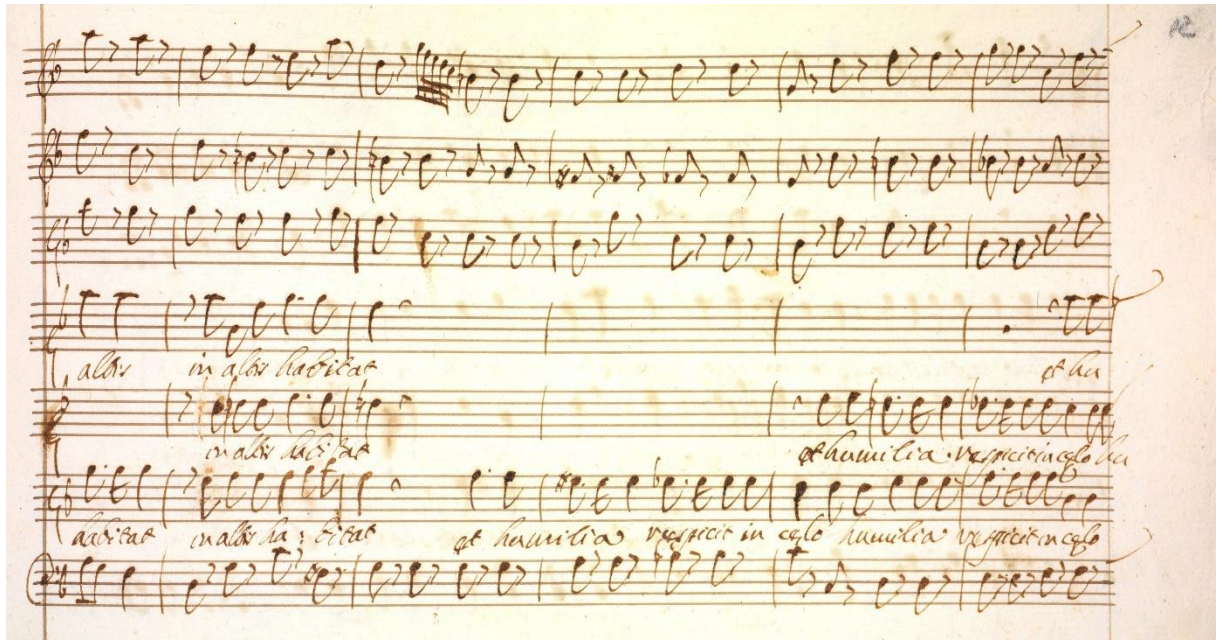 12
altis in altis habitat et hu
in altis habitat et humilia respicit in celo hu
habitat in altis ha: bitat et humilia respicit in celo humilia respicit in celo